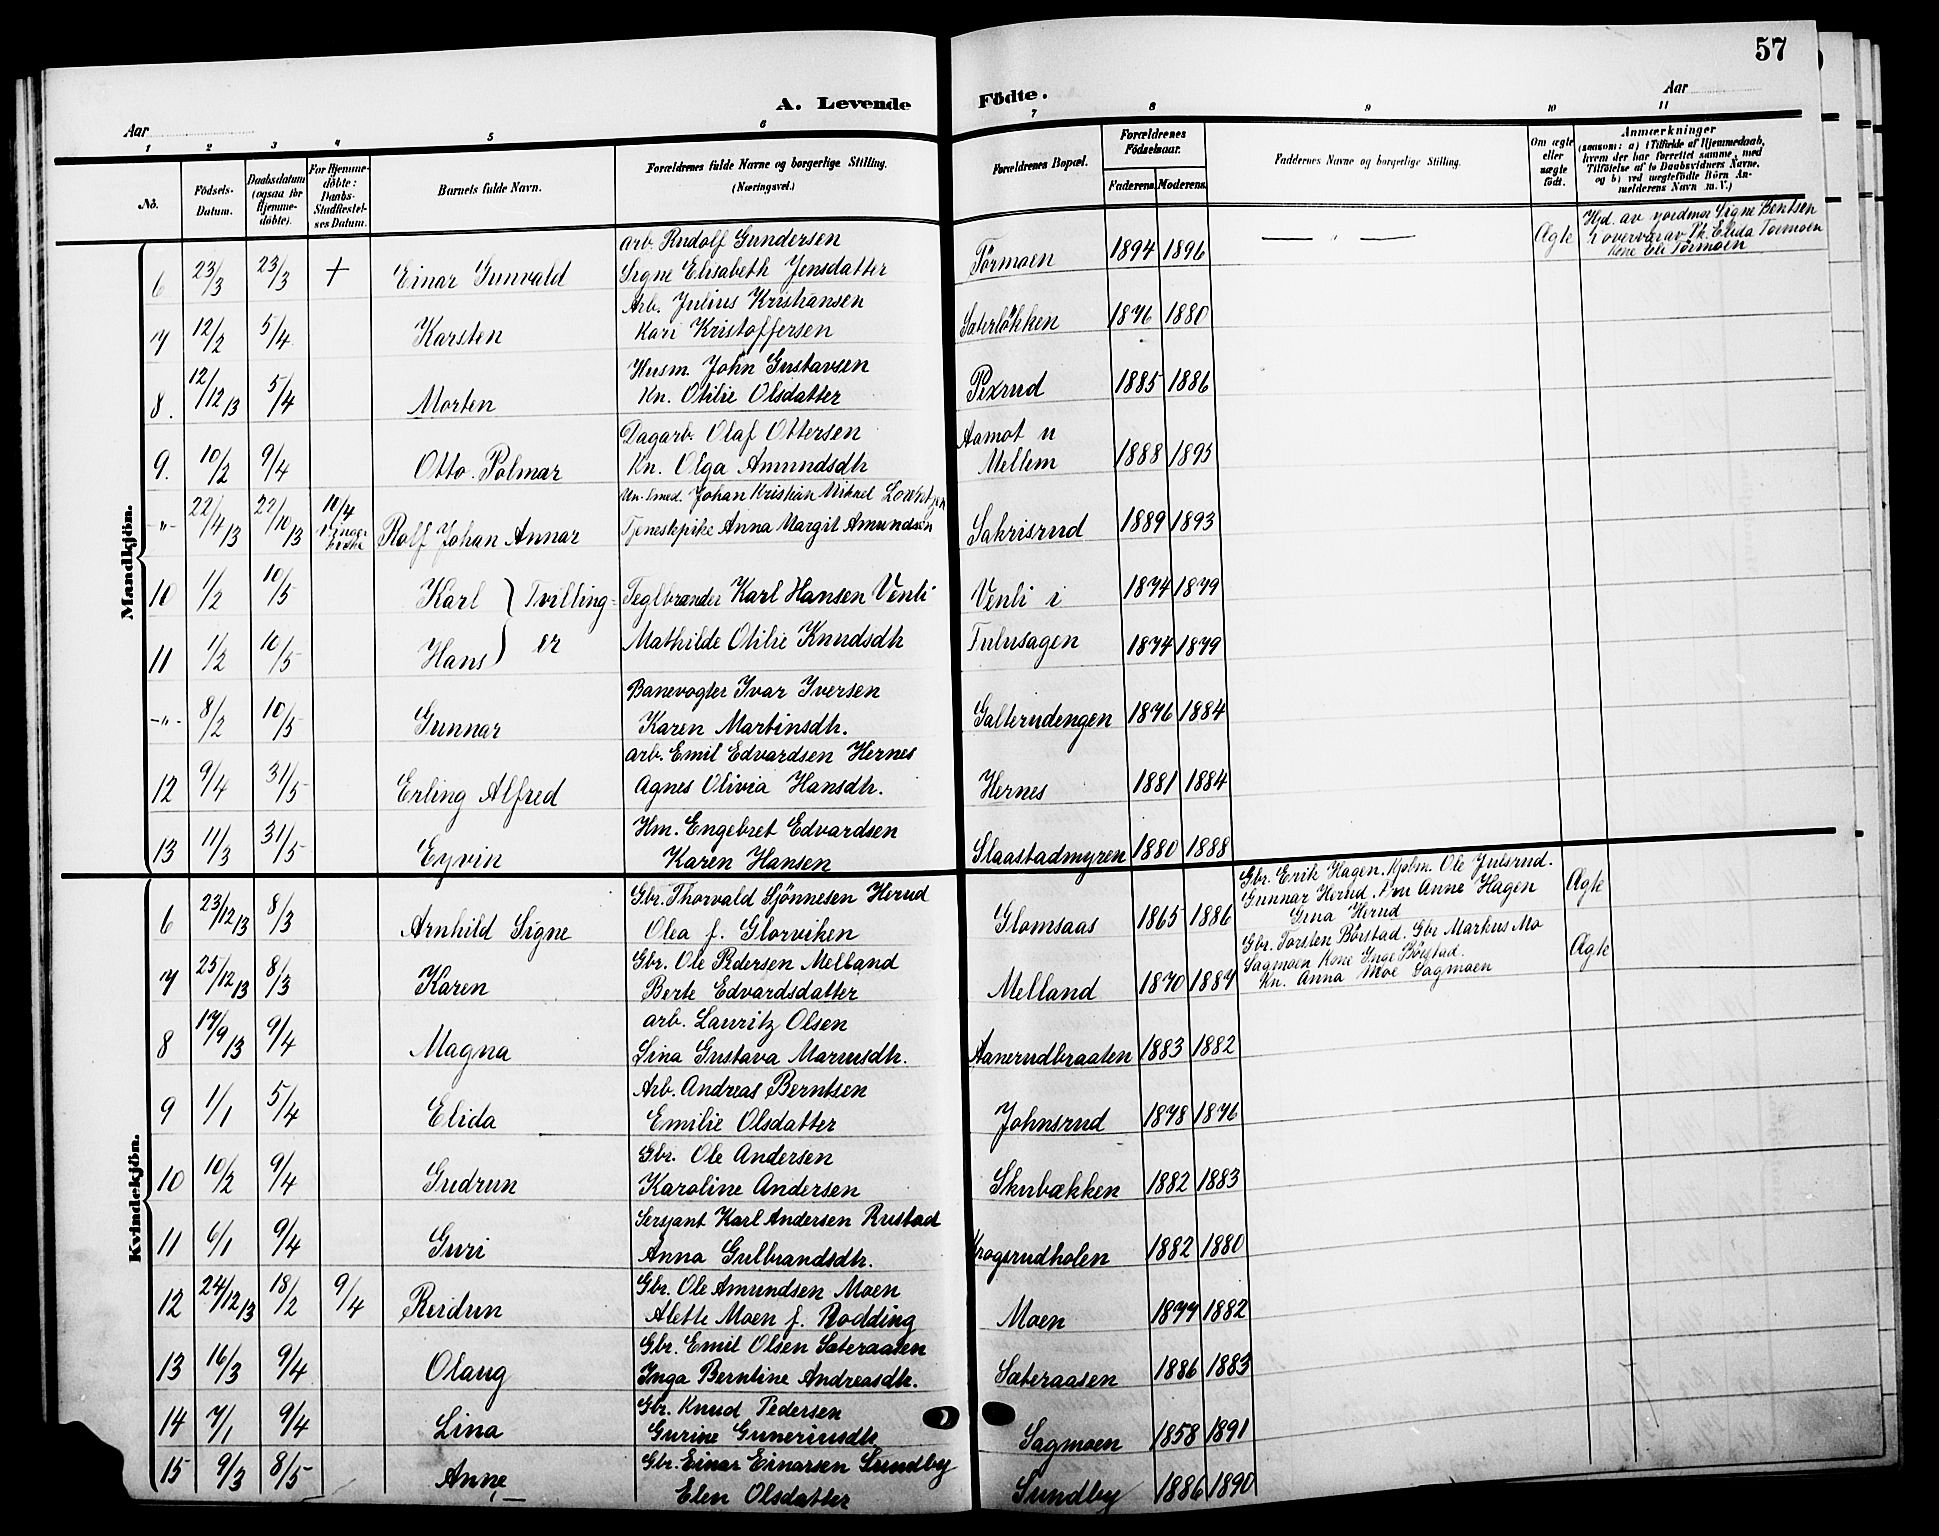 57
A. Levende Födte.
Aar Aar
1 2 3 4 5 6 7 8 9 10 11
No. Födsels-Datum. Daabsdatum (ogsaa for Hjemmedöbte). For Hjemmedöbte: Daabs-Stadfæstelses Datum. Barnets fulde Navn. Forældrenes fulde Navne og borgerlige Stilling. (Næringsvei.) Forældrenes Bopæl. Forældrenes Födselsaar. Faderens. Moderens. Faddernes Navne og borgerlige Stilling. Om ægte eller uægte födt. Anmærkninger (saasom: a) i Tilfælde af Hjemmedaab, hvem der har forrettet samme, med Tilföielse af to Daabsvidners Navne, og b) ved uægtefödte Börn Anmelderens Navn m. V.)
Mandkjön.
arb. Rudolf Gundersen
6 23/3 23/3 + Einar Gunvald Signe Elisabeth Jensdatter Törmoen 1894 1896 — " — Ægte Hjd. av jordmor Signe Bentsen
i overvær av Pk. Elida Tormoen
Kone Eli Törmoen
Arb. Julius Kristiansen
7 12/2 5/4 Karsten Kari Kristoffersen Sæterlökken 1876 1880
Husm. John Gustavsen
8. 12/12 13 5/4 Morten Kn. Otilie Olsdatter Pexrud 1885 1886
Dagarb. Olaf Ottersen Aamot u
9. 10/2 9/4 Otto Palmar Kn. Olga Amundsdtr Mellem 1888 1895
Un. smed. Johan Kristian Mikael Lorentzen
-"- 22/4 13 22/10 13 10/4 Vinger kirke Rolf Johan Annar Tjenestpike Anna Margit Amundsen Sakrisrud 1889 1893
10 1/2 10/5 Karl } Tvilling- Teglbrænder Karl Hansen Venli Venli i 1874 1879
11 1/2 10/5 Hans } er Mathilde Otilie Knudsdtr Tulusagen 1874 1879
Banevogter Ivar Iversen
-"- 8/2 10/5 Gunnar Karen Martinsdtr. Galterudengen 1876 1884
arb. Emil Edvardsen Hernes
12 9/4 31/5 Erling Alfred Agnes Olivia Hansdtr. Hernes 1881 1884
Hm. Engebret Edvardsen
13 11/3 31/5 Eyvin Karen Hansen Slaastadmyren 1880 1888
Kvindekjön.
Gbr. Thorvald Sjönnesen Herud Gbr. Erik Hagen. Kjøbm. Ole Julsrud.
6 23/12 13 8/3 Arnhild Signe Olea f. Glorviken Glomsaas 1865 1886 Gunnar Herud. Kn Anne Hagen Ægte
Gina Herud
Gbr. Ole Pedersen Melland Gbr. Torsten Börstad. Gbr Markus Mo
7 25/12 13 8/3 Karen Berte Edvardsdatter Melland 1870 1887 Sagmoen Kone Inge Börstad. Ægte
Kn. Anna Moe Sagmoen
arb. Lauritz Olsen
8 17/9 13 9/4 Magna Lina Gustava Mariusdtr. Aanerudbraaten 1883 1882
Arb. Andreas Berntsen
9 1/1 5/4 Elida Emilie Olsdatter Johnsrud 1878 1876
Gbr. Ole Andersen
10 10/2 9/4 Gudrun Karoline Andersen Skubækken 1882 1883
Sersjant Karl Andersen Rustad
11 6/1 9/4 Guri Anna Gulbrandsdtr. Krogsrudholen 1882 1880
Gbr. Ole Amundsen Moen
12 24/12 13 18/2 9/4 Reidun Alette Moen f. Rodding Moen 1877 1882
Gbr. Emil Olsen Sæteraasen
13 16/3 9/4 Olaug Inga Berntine Andreasdtr. Sæteraasen 1886 1883
Gbr. Knud Pedersen
14 7/1 9/4 Lina Gurine Guneriusdtr Sagmoen 1858 1891
Gbr. Einar Einarsen Sundby
15 9/3 8/5 Anne Elen Olsdatter Sundby 1886 1890